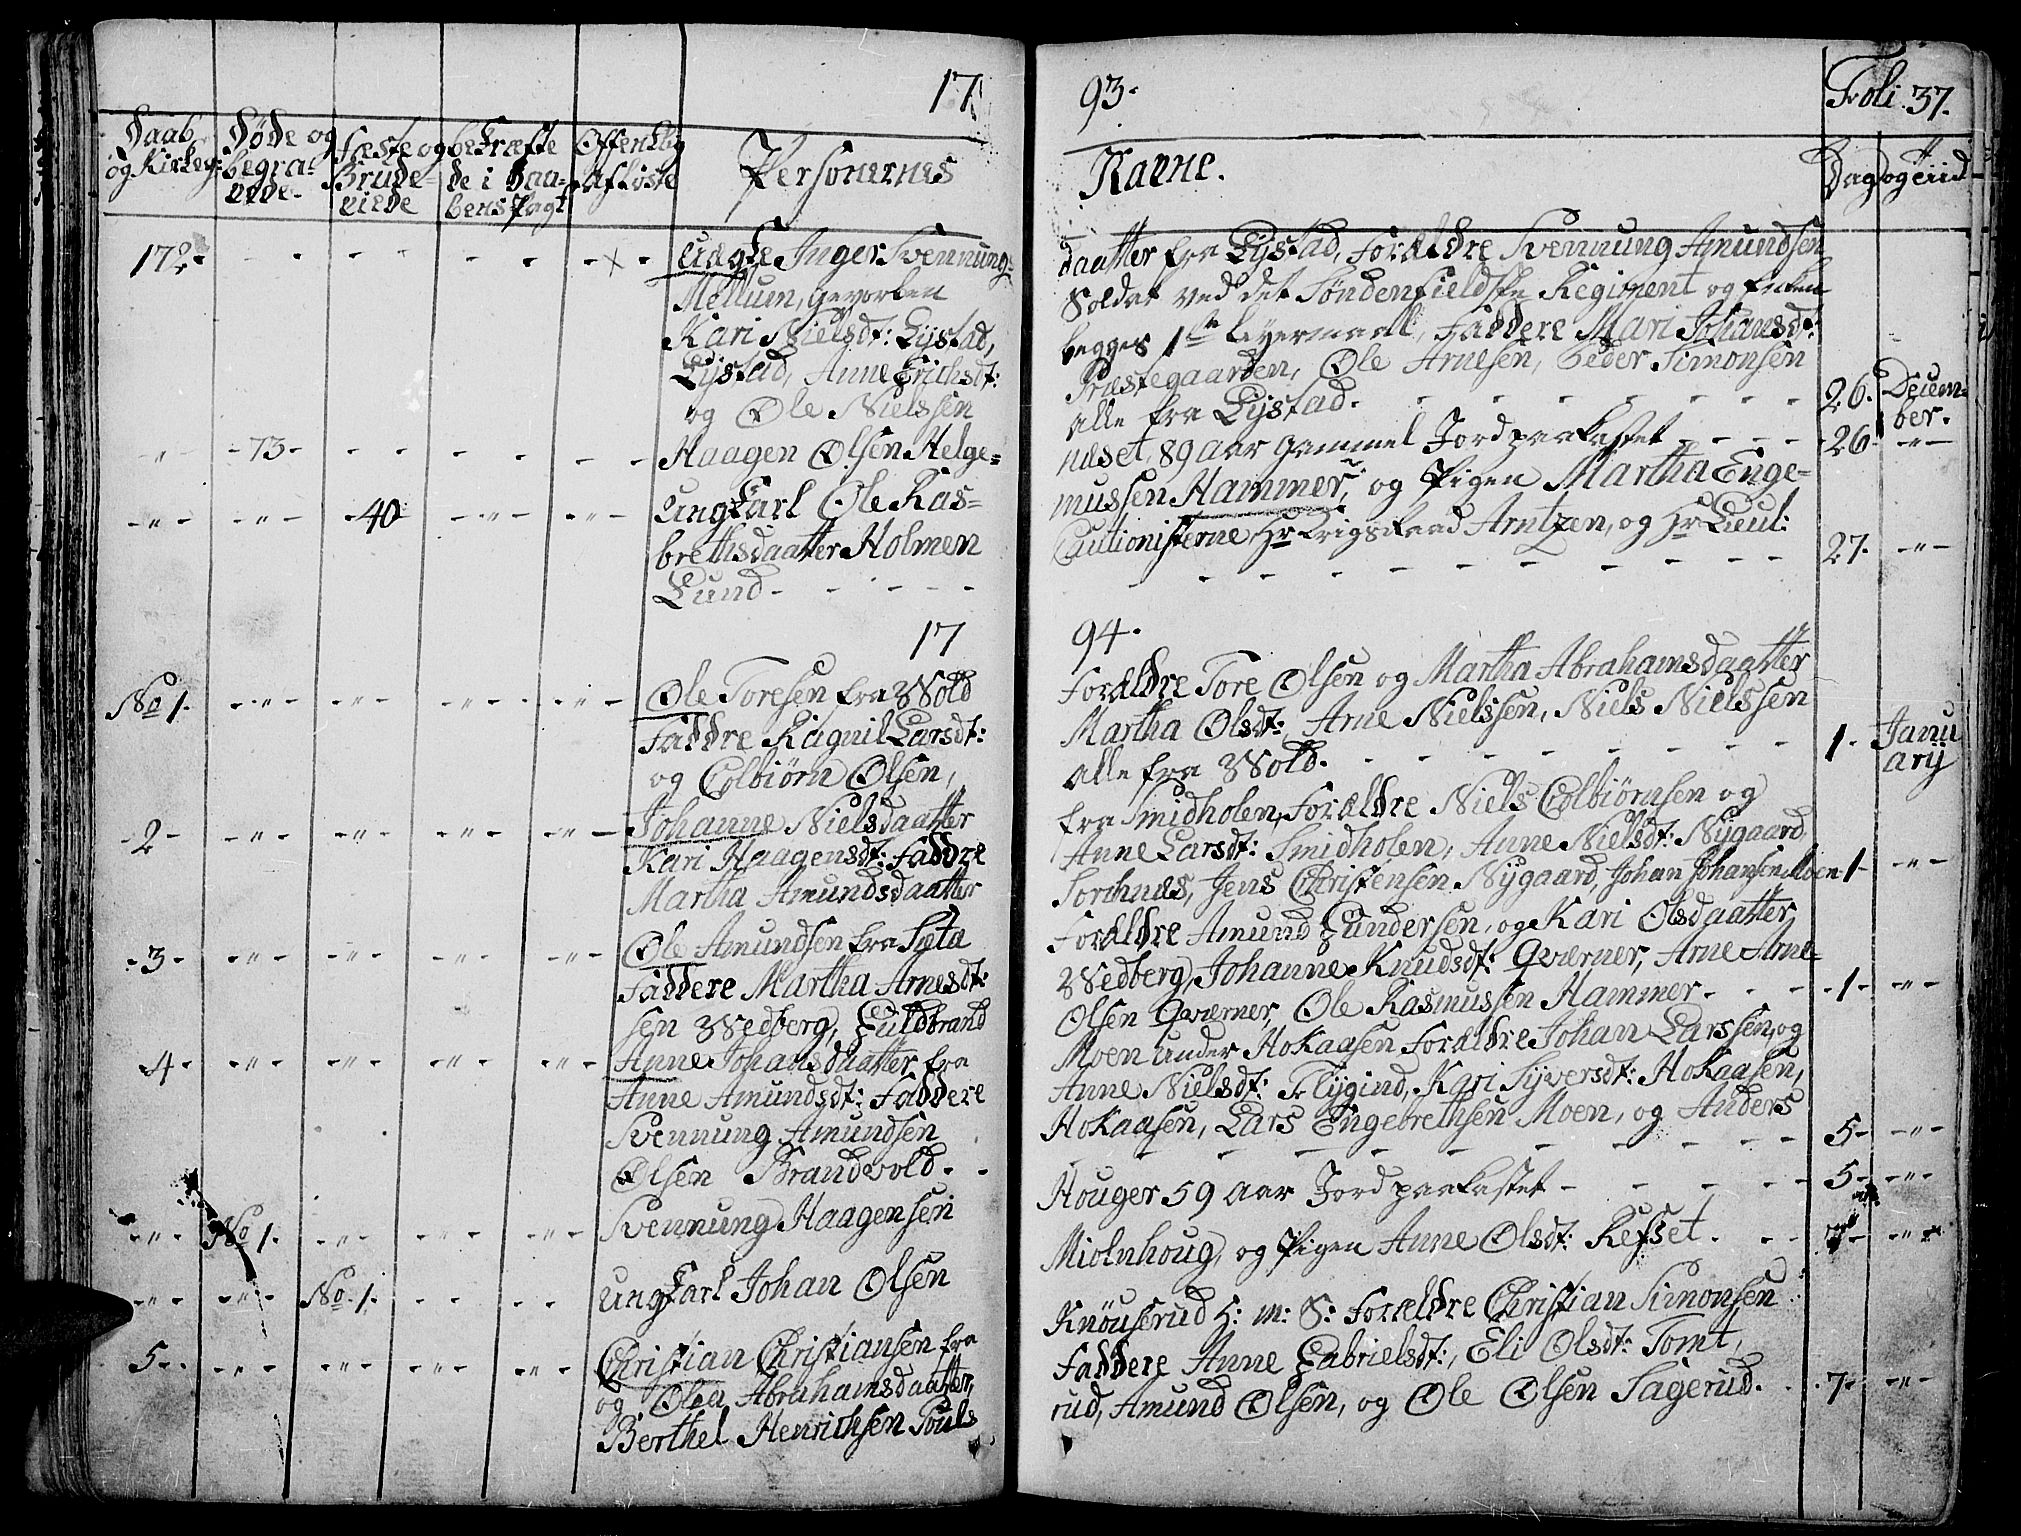 17
Daab og Kirkeg:
Døde og begravede.
Fæste og Brudeviede
bekræftede i Daabens Pagt
Offentlig Afløste
Personernes
172.
uægte Inger Svennung-
Mellum,
Kari Nielsdt: Lystad,
Lystad, Anne Erichsdt:
og Ole Nielssen
73
Haagen Olsen Helge=
40
Ung Karl Ole Ras=
brethsdaatter Holmen
Lund
17
No 1.
Ole Toresen fra Wold
Faddre Ragnil Larsdt:
og Colbiørn Olsen,
2
Johanne Nielsdaatter
Kari Haagensdt: Faddre
Martha Amundsdaatter
3
Ole Amundsen fra Sæta
Faddere Martha Arnesdt:
sen Wedberg, Guldbrand
4
Anne Johansdaatter fra
Anne Amundsdt: Faddere
Svennung Amundsen
Olsen Brandvold.
No 1.
Svennung Haagensen
No. 1.
Ung Karl Johan Olsen
5
Christian Christiansen fra
og Olea Abrahamsdaatter,
Berthel Henrichsen Pouls
93.
Foli 37.
Navne.
Dag og Tiid
daatter fra Lystad, Forældre Svennung Amundsen
Soldat ved det Søndenfieldske Regiment og
begges 1ste Leyermaal, Faddere Mari Johansdt:
Præstegaarden, Ole Arnesen, Peder Simonsen
alle fra Lystad.
26. December.
næset, 89 aar gammel Jordpaakastet
26
mussen Hammer, og Pigen Martha Enge=
Cautionisterne, Hr Krigsraad Arntzen, og Hr Lieut:
27.
94.
Forældre Tore Olsen og Martha Abrahamsdaatter
Martha Olsdt: Arne Nielssen, Niels Nielssen
alle fra Wold.
1. January
fra Smidholen, Forældre Niels Colbiørnsen og
Anne Larsdt: Smidholen, Anne Nielsdt: Nygaard
Sorchnæs, Jens Christensen Nygaard, Johan Johansen Moen
1
Forældre Amund Gundersen, og Kari Olsdaatter,
Wedberg, Johanne Knudsdt: Qværner, Arne Arne-
Olsen Qværner, Ole Rasmussen Hammer
1
Moen under Hokaasen Forældre Johan Larssen, og
Anne Nielsdt: Flygind, Kari Syversdt: Hokaasen,
Hokaasen, Lars Engebrethsen Moen, og Anders
5
Houger 59 aar Jordpaakastet
5
Miolnhoug, og Pigen Anne Olsdt: Refset.
Knøuserud H: m: S: Forældre Christian Simonsen
Faddere Anne Gabrielsdt:, Eli Olsdt: Tomt,
rud, Amund Olsen, og Ole Olsen Sagerud.
7